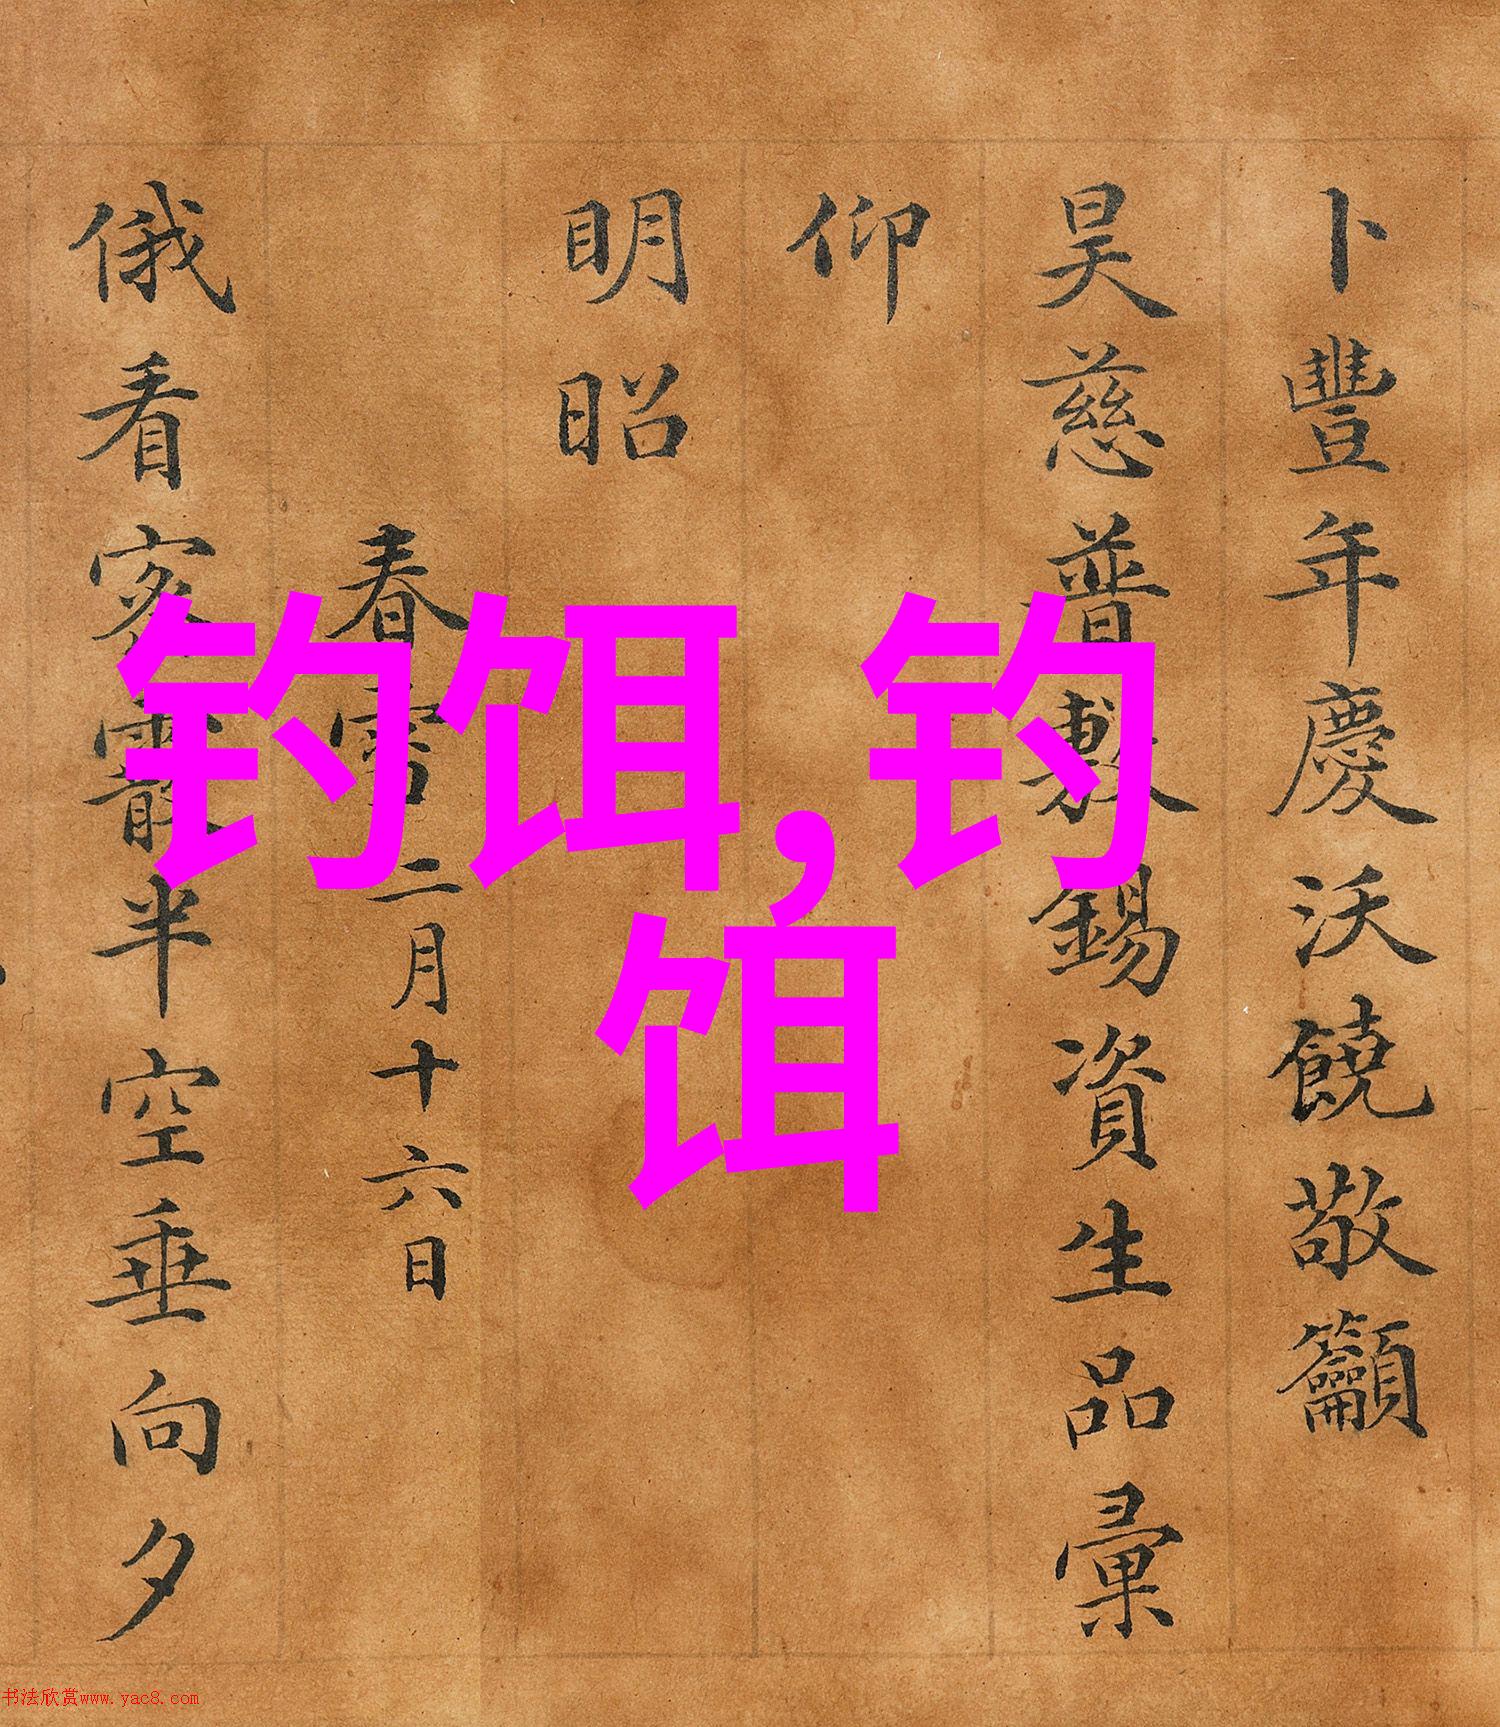 卜豐年慶沃饒敬籲
昊慈普敷錫資生品彙
仰
明昭
春雪二月十六日
俄看密霰半空垂向夕
钓饵,钓
饵
书法欣赏www.yac8.com